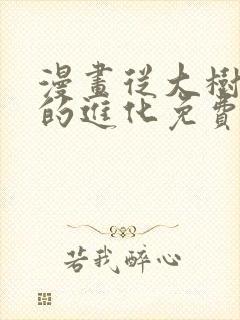 漫畫從大樹
的進化免費
若我醉心